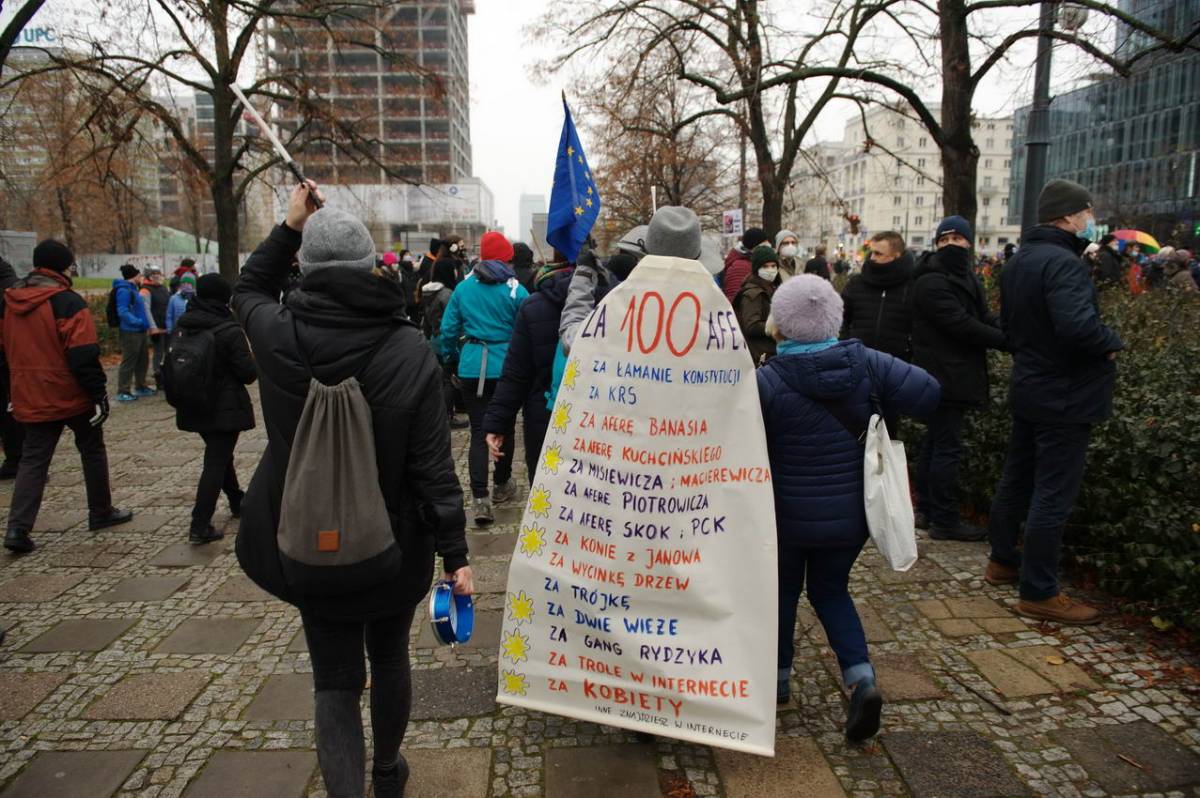 UPC
ZA 100 AFE
ZA ŁAMANIE KONSTYTUCJI
ZA KRS
ZA AFERĘ BANASIA
ZA AFERĘ KUCHCIŃSKIEGO
ZA MISIEWICZA i MACIEREWICZA
ZA AFERĘ PIOTROWICZA
ZA AFERĘ SKOK i PCK
ZA KONIE Z JANOWA
ZA WYCINKĘ DRZEW
ZA TRÓJKĘ
ZA DWIE WIEŻE
ZA GANG RYDZYKA
ZA TROLE W INTERNECIE
ZA KOBIETY
INNE ZNAJDZIESZ W INTERNECIE